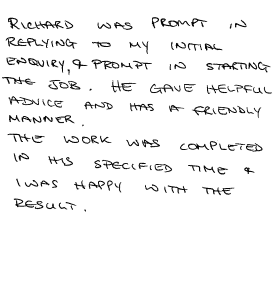 RICHARD WAS PROMPT IN
REPLYING TO MY INITIAL
ENQUIRY, & PROMPT IN STARTING
THE JOB. HE GAVE HELPFUL
ADVICE AND HAS A FRIENDLY
MANNER.
THE WORK WAS COMPLETED
IN HIS SPECIFIED TIME &
I WAS HAPPY WITH THE
RESULT.